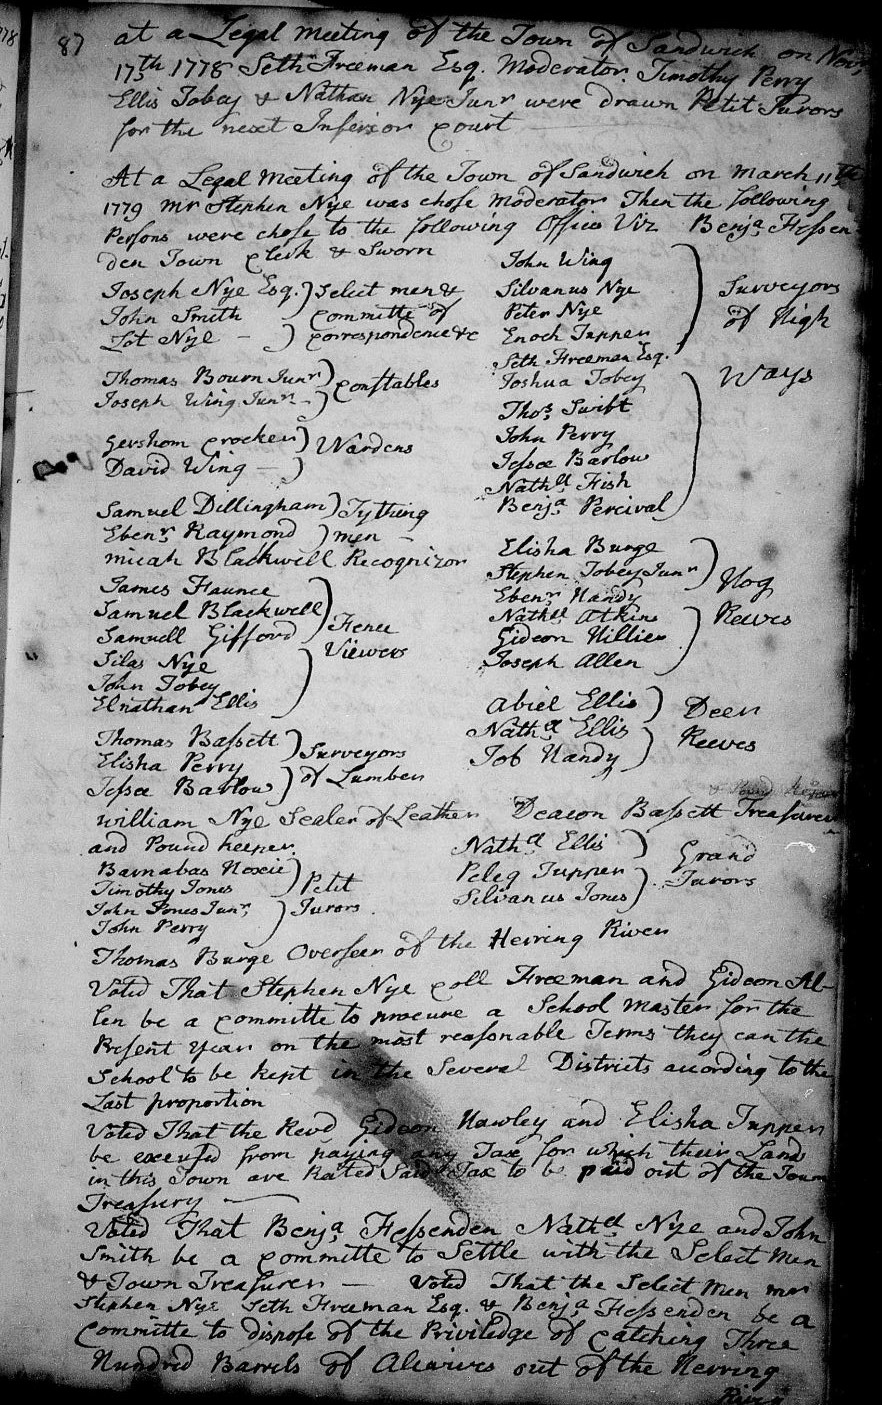 87
at a Legal meeting of the Town of Sandwich on Novr
17th 1778 Seth Freeman Esq. Moderator. Timothy Perry
Ellis Tobey & Nathan Nye Junr were drawn Petit Jurors
for the next Inferior Court
At a Legal Meeting of the Town of Sandwich on March 11th
1779 Mr Stephen Nye was chose Moderator Then the following
Persons were chose to the following Offices Viz Benja Fessen-
den Town Clerk & Sworn
Joseph Nye Esq.
John Smith
Lot Nye
Select men &
Committe of
Correspondence &c
Thomas Bourn Junr
Joseph Wing Junr
Constables
Gershom Crocker
David Wing
Wardens
Samuel Dillingham
Ebenr Raymond
Tything
men
Micah Blackwell Recognizor
James Faunce
Samuel Blackwell
Samuell Gifford
Silas Nye
John Tobey
Elnathan Ellis
Fence
Viewers
Thomas Bassett
Elisha Perry
Jessee Barlow
Surveyors
of Lumber
William Nye Sealer of Leather
and Pound keeper
Barnabas Hoxie
Timothy Jones
John Jones Junr
John Perry
Petit
Jurors
John Wing
Silvanus Nye
Peter Nye
Enoch Tupper
Seth Freeman Esq.
Joshua Tobey
Thos Swift
John Perry
Jessee Barlow
Nathll Fish
Benja Percival
Surveyors
of High
Ways
Elisha Burge
Stephen Tobey Junr
Ebenr Handy
Nathll Atkins
Gideon Hillier
Joseph Allen
Hog
Reeves
Abiel Ellis
Nathll Ellis
Job Handy
Deer
Reeves
Deacon Bassett Treasurer
Nathll Ellis
Peleg Tupper
Silvanus Jones
Grand
Jurors
Thomas Burge Overseer of the Herring River
Voted That Stephen Nye Coll Freeman and Gideon Al-
len be a Committe to procure a School Master for the
Present Year on the most reasonable Terms they can the
School to be kept in the Several Districts according to the
Last proportion
Voted That the Revd Gideon Hawley and Elisha Tupper
be excused from paying any Tax for which their Land
in this Town are Rated Said Tax to be paid out of the Town
Treasury
Voted That Benja Fessenden Nathll Nye and John
Smith be a Committe to Settle with the Select Men
& Town Treasurer — Voted That the Select Men mr
Stephen Nye Seth Freeman Esq. & Benja Fessenden be a
Committe to dispose of the Priviledge of Catching Three
Hundred Barrels of Alewives out of the Herring
River